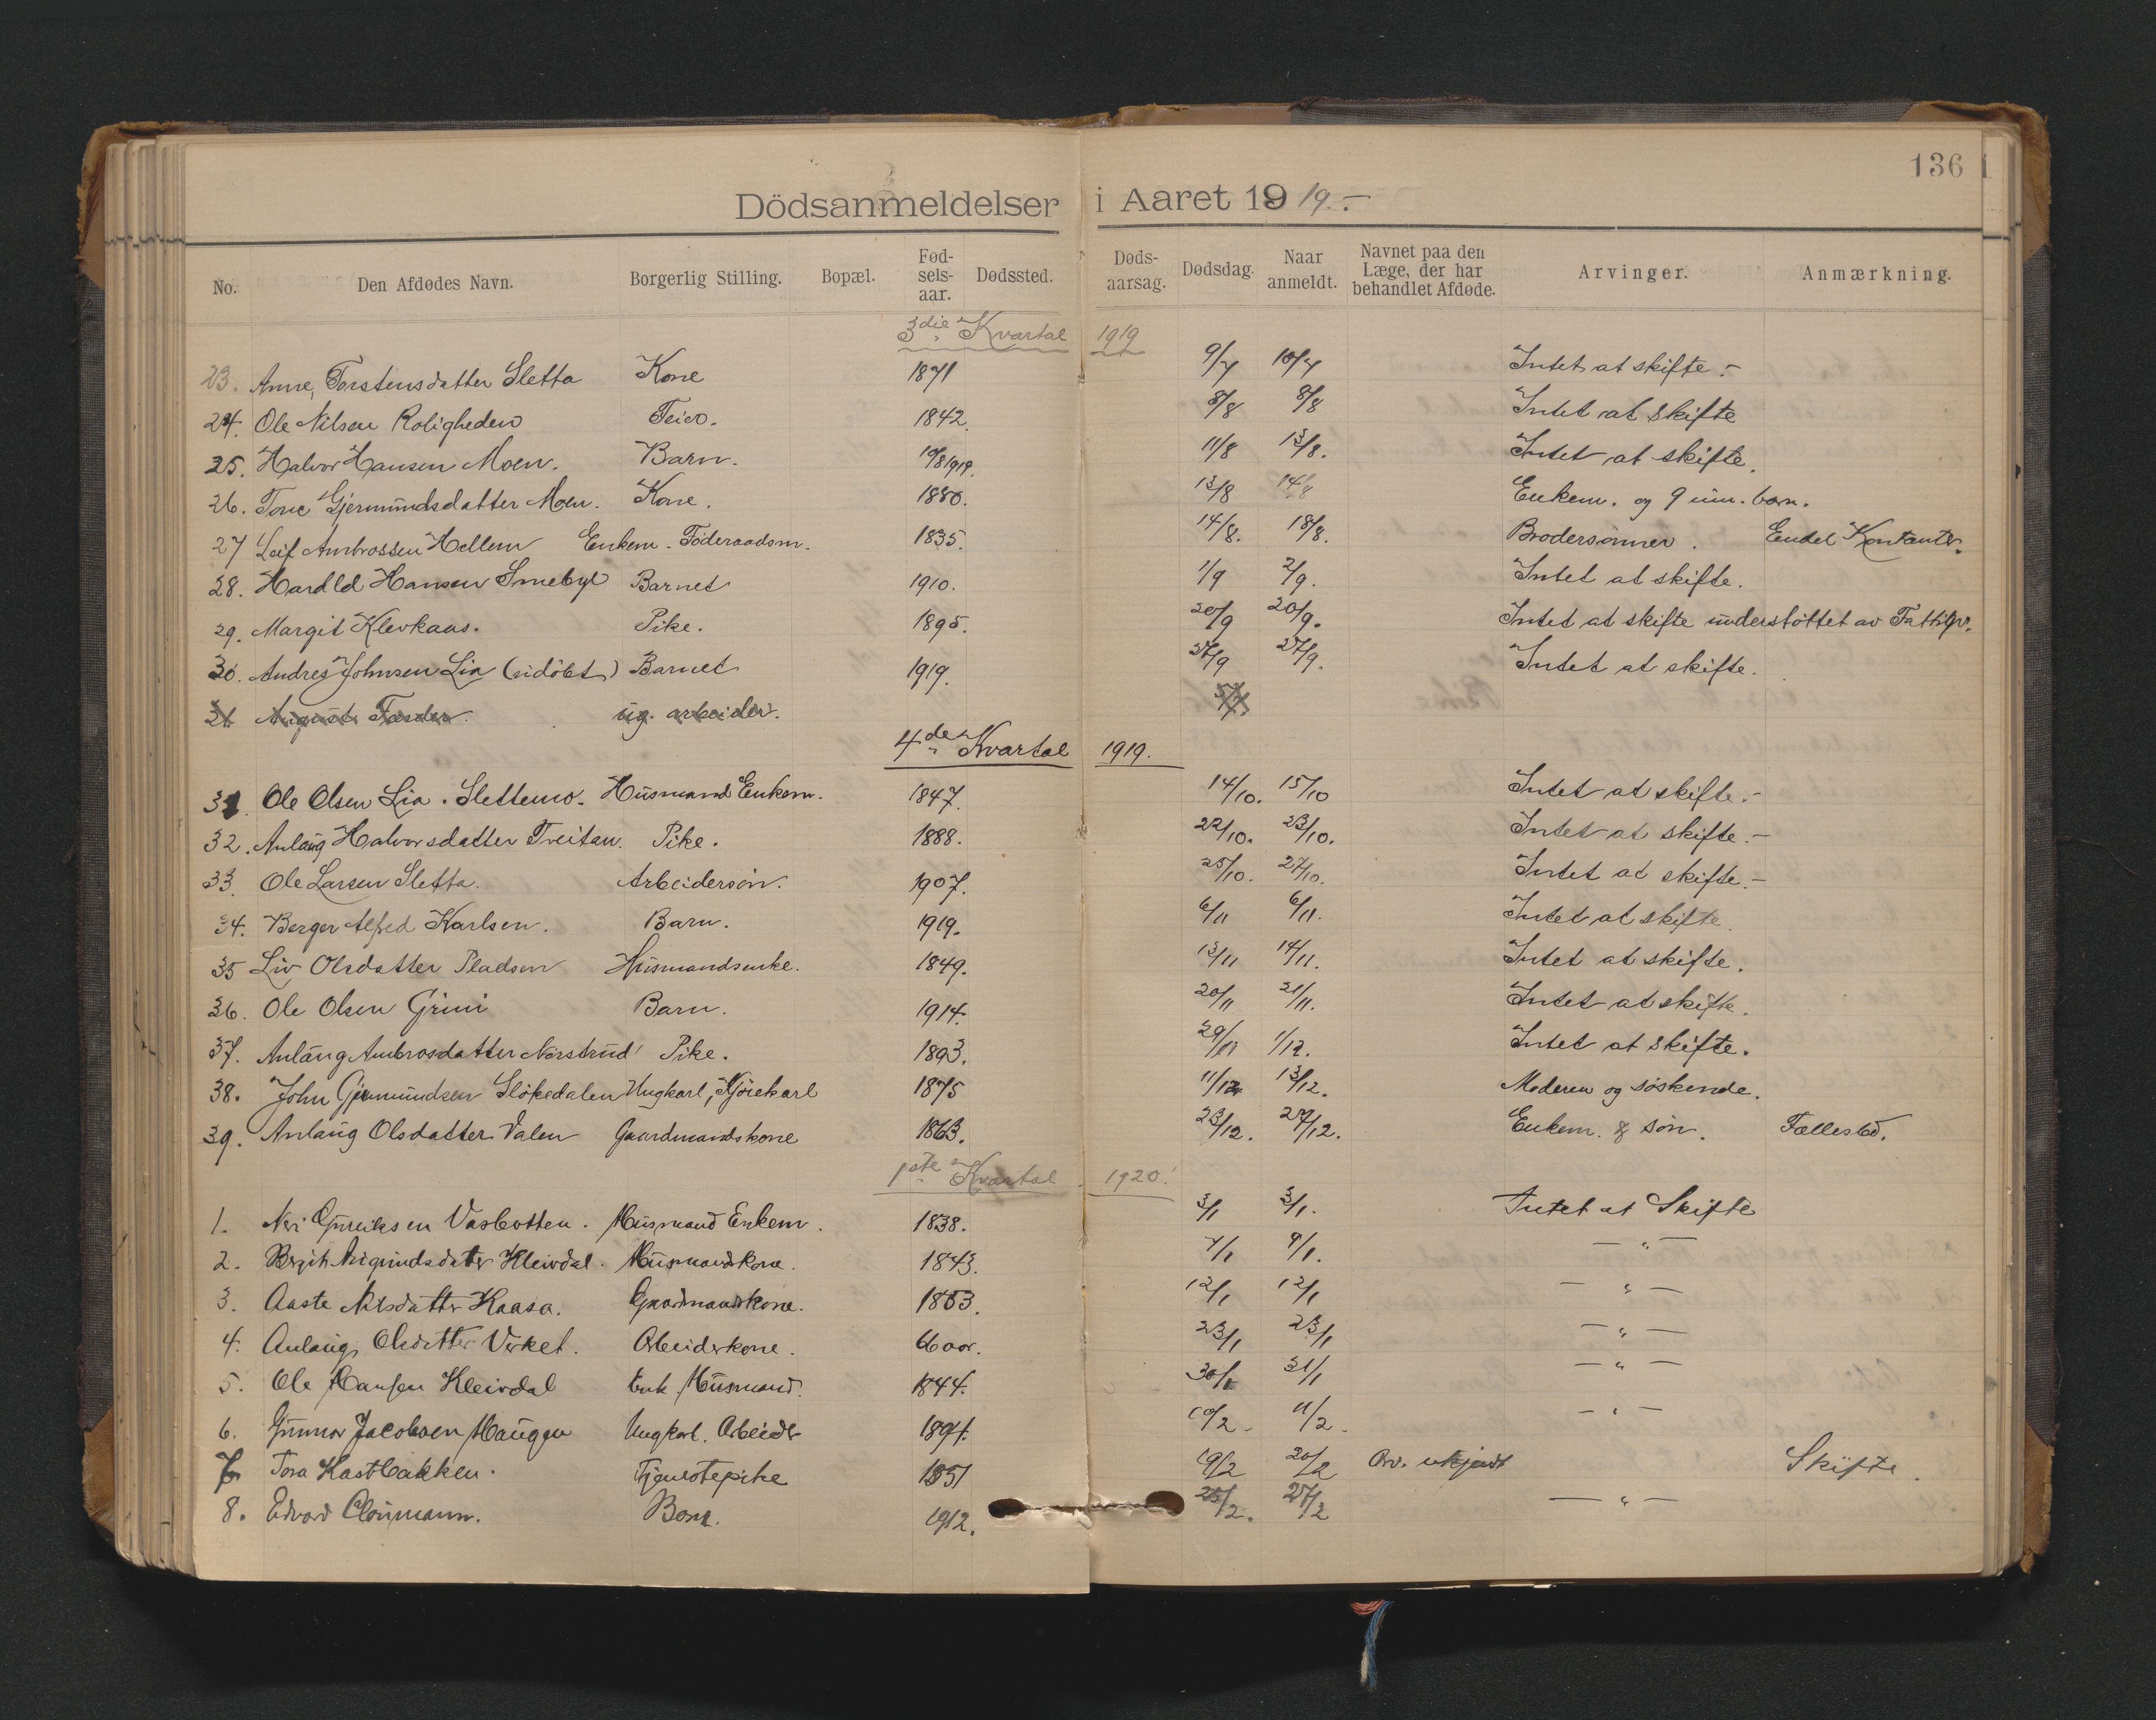 136
Dödsanmeldelser i Aaret 1919.-
No. Den Afdødes Navn. Borgerlig Stilling. Bopæl. Fød-sels-aar. Dødssted. Døds-aarsag. Dødsdag. Naar anmeldt. Navnet paa den Læge, der har behandlet Afdøde. Arvinger. Anmærkning.
3die Kvartal 1919
23. Anne Torstensdatter Sletta Kone 1871 9/7 10/7 Intet at skifte.-
24. Ole Nilsen Roligheden 1842. 8/8 8/8 Intet at skifte
25. Halvor Hansen Moen. Barn. 10/8 1919. 11/8 13/8. Intet at skifte.
26. Tone Gjermundsdatter Moen. Kone. 1880. 13/8 14/8 Enkem. og 9 um. barn.
27 Leif Ambrossen Hellem Enkem. Föderaadsm. 1835. 14/8. 18/8. Brodersönner. Endel Kontanter.
28. Hardld Hansen Smebyl Barnet 1910. 1/9 2/9. Intet at skifte.
29. Margit Klevkaas. Pike. 1895. 20/9 20/9. Intet at skifte understöttet av Fattigv.
30. Andres Johnsen Lia (udöbt) Barnet 1919. 27/9 27/9. Intet at skifte.
31 August ug. arbeider.
4de Kvartal 1919.
31. Ole Olsen Lia. Slettemo. Husmand Enkem. 1847. 14/10. 15/10 Intet at skifte.-
32. Anlaug Halvorsdatter Treitan. Pike. 1888. 22/10. 23/10. Intet at skifte.-
33. Ole Larsen Sletta. Arbeidersön. 1907. 25/10. 27/10. Intet at skifte.-
34. Berger Alfred Karlsen. Barn. 1919. 6/11 6/11. Intet at skifte.
35 Liv Olsdatter Pladsen Husmandsenke. 1849. 13/11 14/11. Intet at skifte.
36. Ole Olsen Grini Barn. 1914. 20/11 21/11. Intet at skifte.
37. Anlaug Ambrosdatter Norstrud Pike. 1893. 29/11 1/12. Intet at skifte.
38. John Gjermundsen Slökedalen Ungkarl, Kjörekarl 1875 11/12 13/12. Moderen og söskende.
39. Anlaug Olsdatter Valen Gaardmandskone 1863. 23/12. 29/12. Enkem. & sön. Fællesbo.
1ste Kvartal 1920.
1. Nri Gunleiksen Vasbotten. Husmand Enkem. 1838. 3/1 3/1. Intet at Skifte
2. Bergit Sigundsdatter Kleivdal. Husmandskone. 1843. 7/1 9/1. — " —
3. Aaste Nilsdatter Haasa. Gaardmandskone. 1853. 12/1 12/1 — " —
4. Anlaug Olsdatter Verket. Arbeiderkone. 66 aar. 23/1 23/1 — " —
5. Ole Hansen Kleivdal Enk. Husmand. 1844. 30/1 31/1 — " —
6. Gunnar Jacobsen Haugen Ungkarl. Arbeider 1894. 10/2 - 11/2 - — " —
7. Tora Kastbakken. Tjenestepike 1851 19/2 20/2 Arv. ukjendt Skifte.
8. Edvard Clausmann. Barn. 1912. 25/2. 27/2 — " —